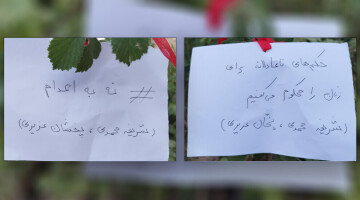 # نه به اعدام
(شریفه محمدی، پخشان عزیزی)
حکم‌های ناعادلانه برای
زنان را محکوم می‌کنیم
(شریفه محمدی، پخشان عزیزی)